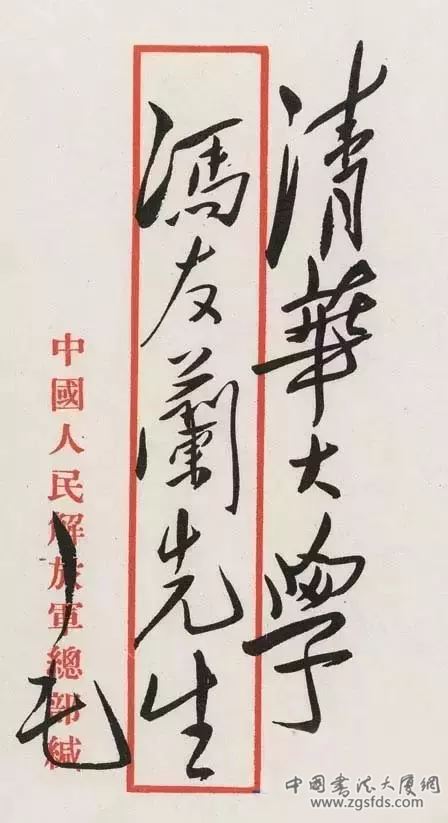 清華大學
馮友蘭先生
中國人民解放軍總部緘
毛
中国書法大厦網
www.zgsfds.com